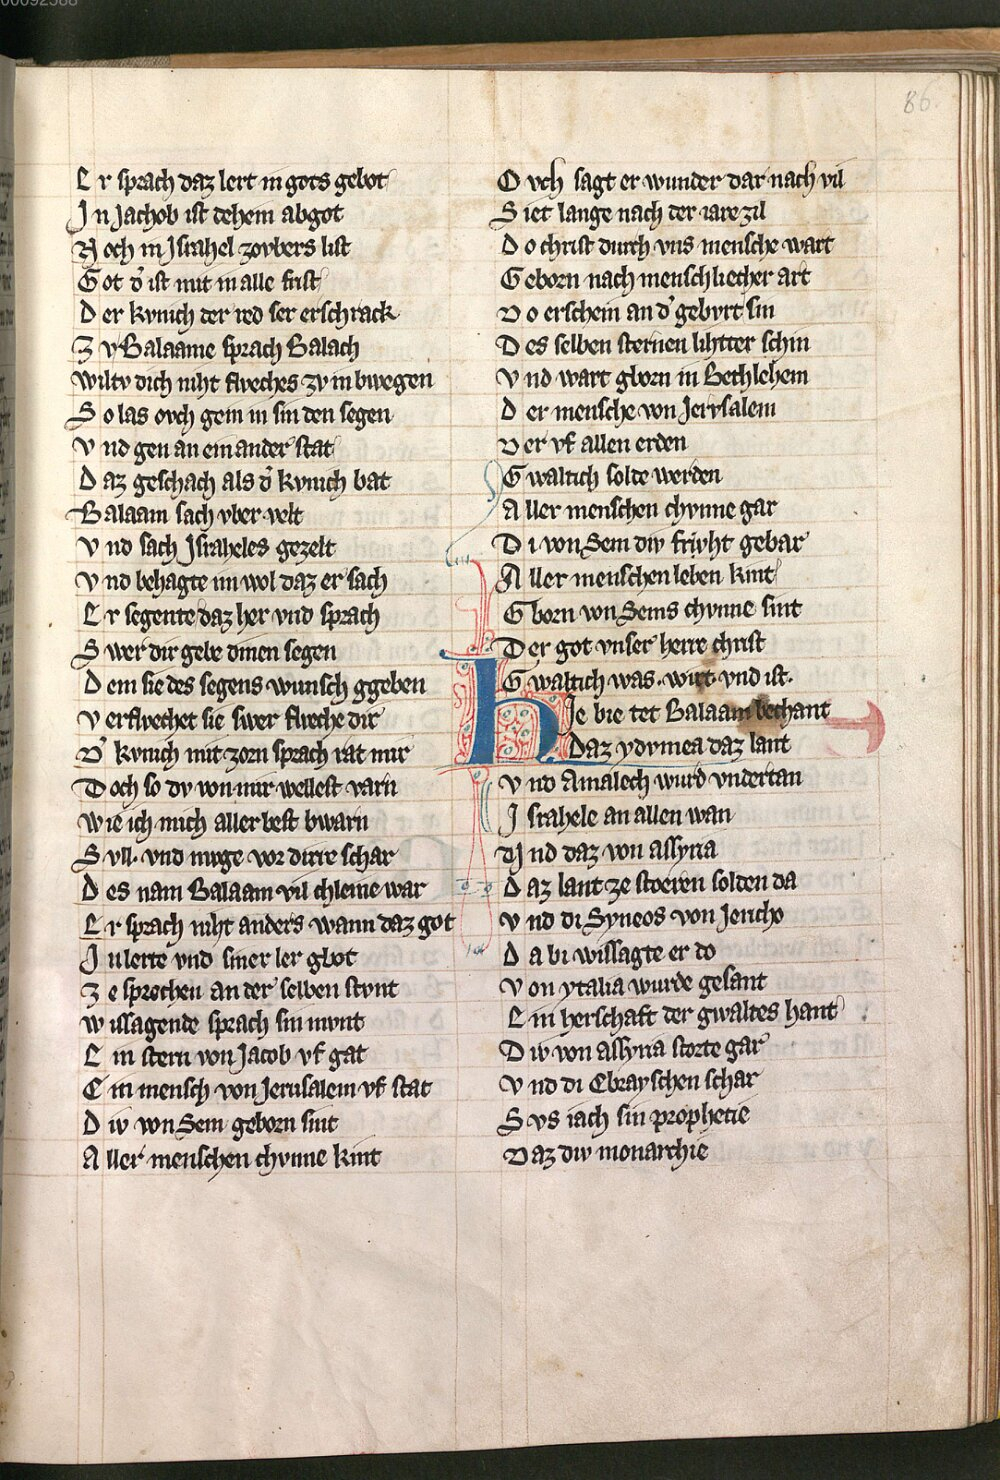 00092588
86
Er sprach daz lert in gots gebot
In Jachob ist dehein abgot
Noch in Israhel zovbers list
Got d̓ ist mit in alle frist
Der kvnich der red ser erschrack
Zv Balaame sprach Balach
wiltv dich niht flveches zv in bwegen
So las ovch gein in sin den segen
vnd gen an ein ander stat
Daz geschach als d̓ kvnich bat
Balaam sach vber velt
vnd sach Israheles gezelt
vnd behagte im wol daz er sach
Er segente daz her vnd sprach
Swer dir gebe dinen segen
Dem si des segens wunsch ggeben
verflvechet sie swer flveche dir
D̓ kvnich mit zorn sprach rat mir
Doch so dv von mir wellest varn
wie ich mich aller best bwarn
Svll. vnd muge vor dirre schar
Des nam Balaam vil chleine war
Er sprach niht anders wann daz got
In lerte vnd siner ler gbot
ze sprechen an der selben stvnt
wissagende sprach sin mvnt
Ein stern von Jacob vf gat
Ein mensch von Jerusalem vf stat
Div von Sem geborn sint
Aller menschen chvnne kint
Ovch sagt er wunder dar nach vil
Siet lange nach der iare zil
Do christ durch vns mensche wart
Geborn nach menschliecher art
Do erschein an d̓ gebvrt sin
Des selben sternen lihtter schin
vnd wart gborn in Bethlehem
Der mensche von Jervsalem
Der vf allen erden
Gwaltich solte werden
Aller menschen chvnne gar
Di von Sem div frivht gebar
Aller menschen leben kint
Gborn von Sems chvnne sint
Der got vnser herre christ
Gwaltich was. wirt. vnd ist.
hIe bie tet Balaam bechant
Daz ydvmea daz lant
vnd Amalech wurd vndertan
Israhele an allen wan
Vnd daz von assyria
Daz lant ze stoeren solden da
vnd di Syneos von Jericho
Da bi wissagte er do
von ytalia wurde gesant
Ein herschaft der gwaltes hant
Div von assyria storte gar
vnd di Ebrayschen schar
Svs iach sin prophetie
Daz div monarchie